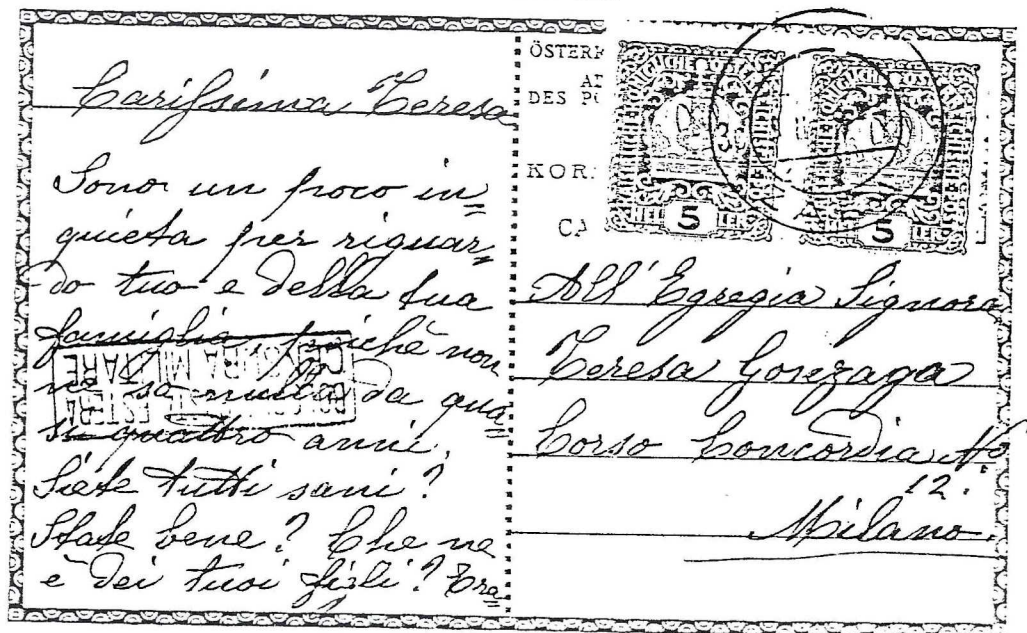 Carissima Teresa
Sono un poco in=
quieta per riguar=
do tuo e della tua
famiglia, poichè non
ne so nulla da qua=
si quattro anni.
Siete tutti sani?
State bene? Che ne
è dei tuoi figli? Era=
ÖSTERR
DES P
KOR
CA
HELLER 5
HELLER 5
All' Egregia Signora
Teresa Gonzaga
Corso Concordia No
12.
Milano.